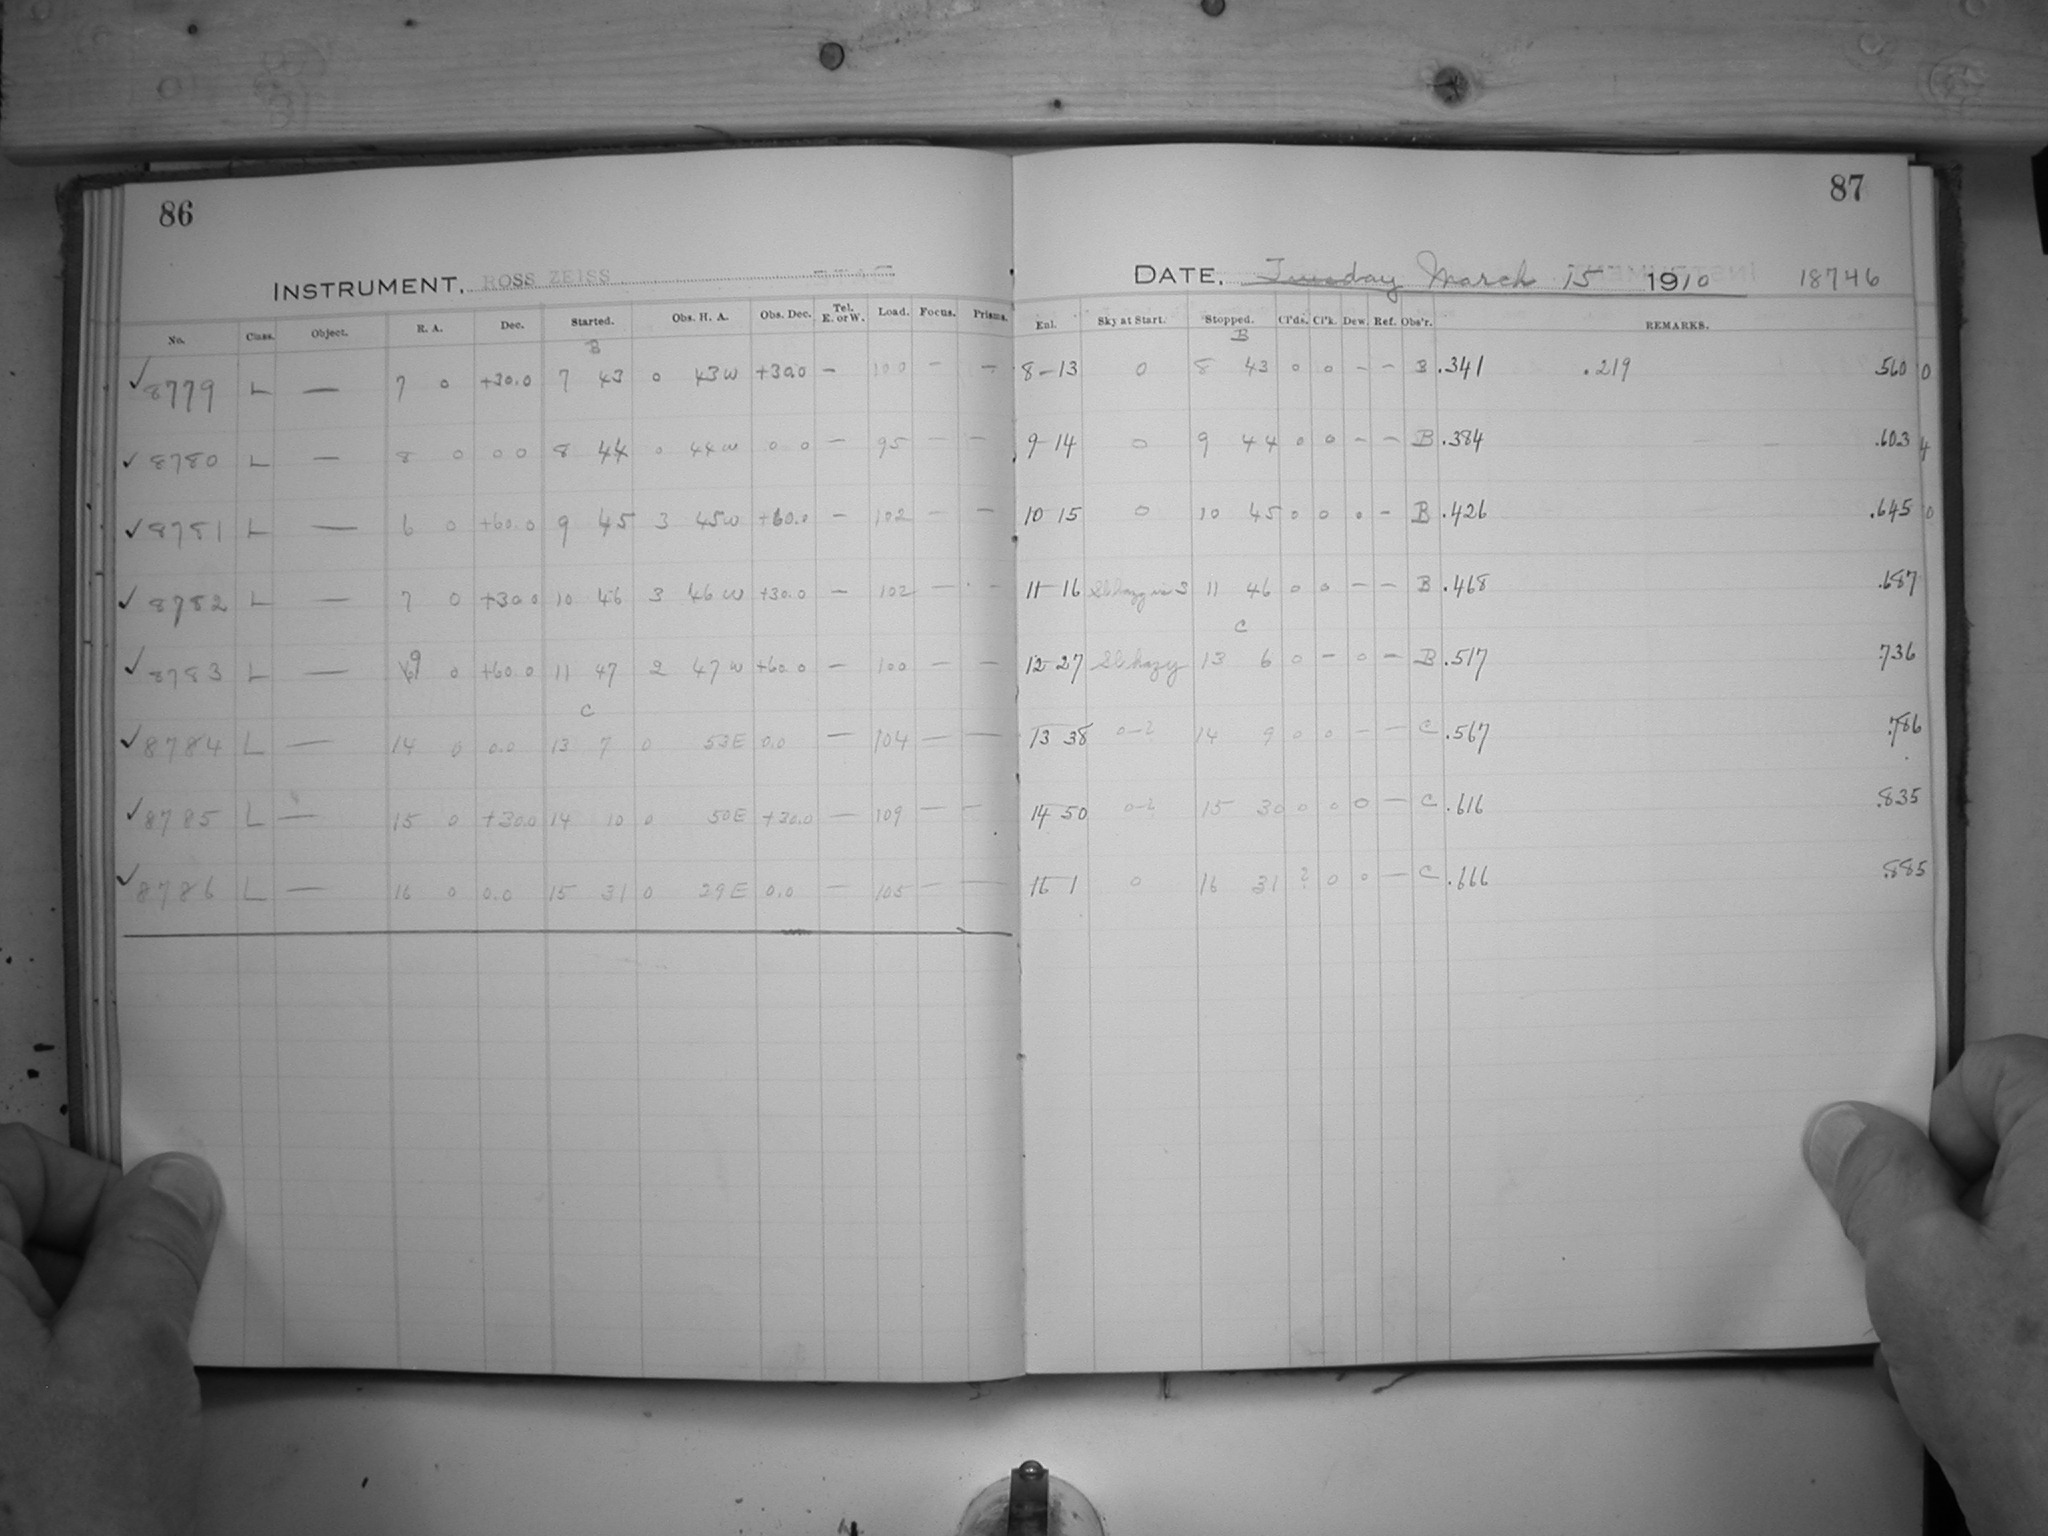 86
INSTRUMENT, ROSS ZEISS
No. Class. Object. R. A. Dec. Started. Obs. H. A. Obs. Dec. Tel. E. or W. Load. Focus. Prisms.
B
✓ 8779 L — 7 0 +30.0 7 43 0 43 W +30.0 — 100 — —
✓ 8780 L — 8 0 0 0 8 44 0 44 W 0 0 — 95 — —
✓ 8781 L — 6 0 +60.0 9 45 3 45 W +60.0 — 102 — —
✓ 8782 L — 7 0 +30.0 10 46 3 46 W +30.0 — 102 — —
✓ 8783 L — 9 0 +60.0 11 47 2 47 W +60.0 — 100 — —
C
✓ 8784 L — 14 0 0.0 13 7 0 53 E 0.0 — 104 — —
✓ 8785 L — 15 0 +30.0 14 10 0 50 E +30.0 — 109 — —
✓ 8786 L — 16 0 0.0 15 31 0 29 E 0.0 — 105 — —
87
DATE, Tuesday March 15 1910 18746
Enl. Sky at Start. Stopped. Cl'ds. Cl'k. Dew. Ref. Obs'r. REMARKS.
B
8-13 0 8 43 0 0 — — B .341 .219 .560 0
9-14 0 9 44 0 0 — — B .384 .603 4
10 15 0 10 45 0 0 0 — B .426 .645 0
11-16 Sl hazy in S 11 46 0 0 — — B .468 .687
C
12-27 Sl hazy 13 6 0 — 0 — B .517 .736
13 38 0-2 14 9 0 0 — — C .567 .786
14 50 0-2 15 30 0 0 0 — C .616 .835
16 1 0 16 31 ? 0 0 — C .666 .885